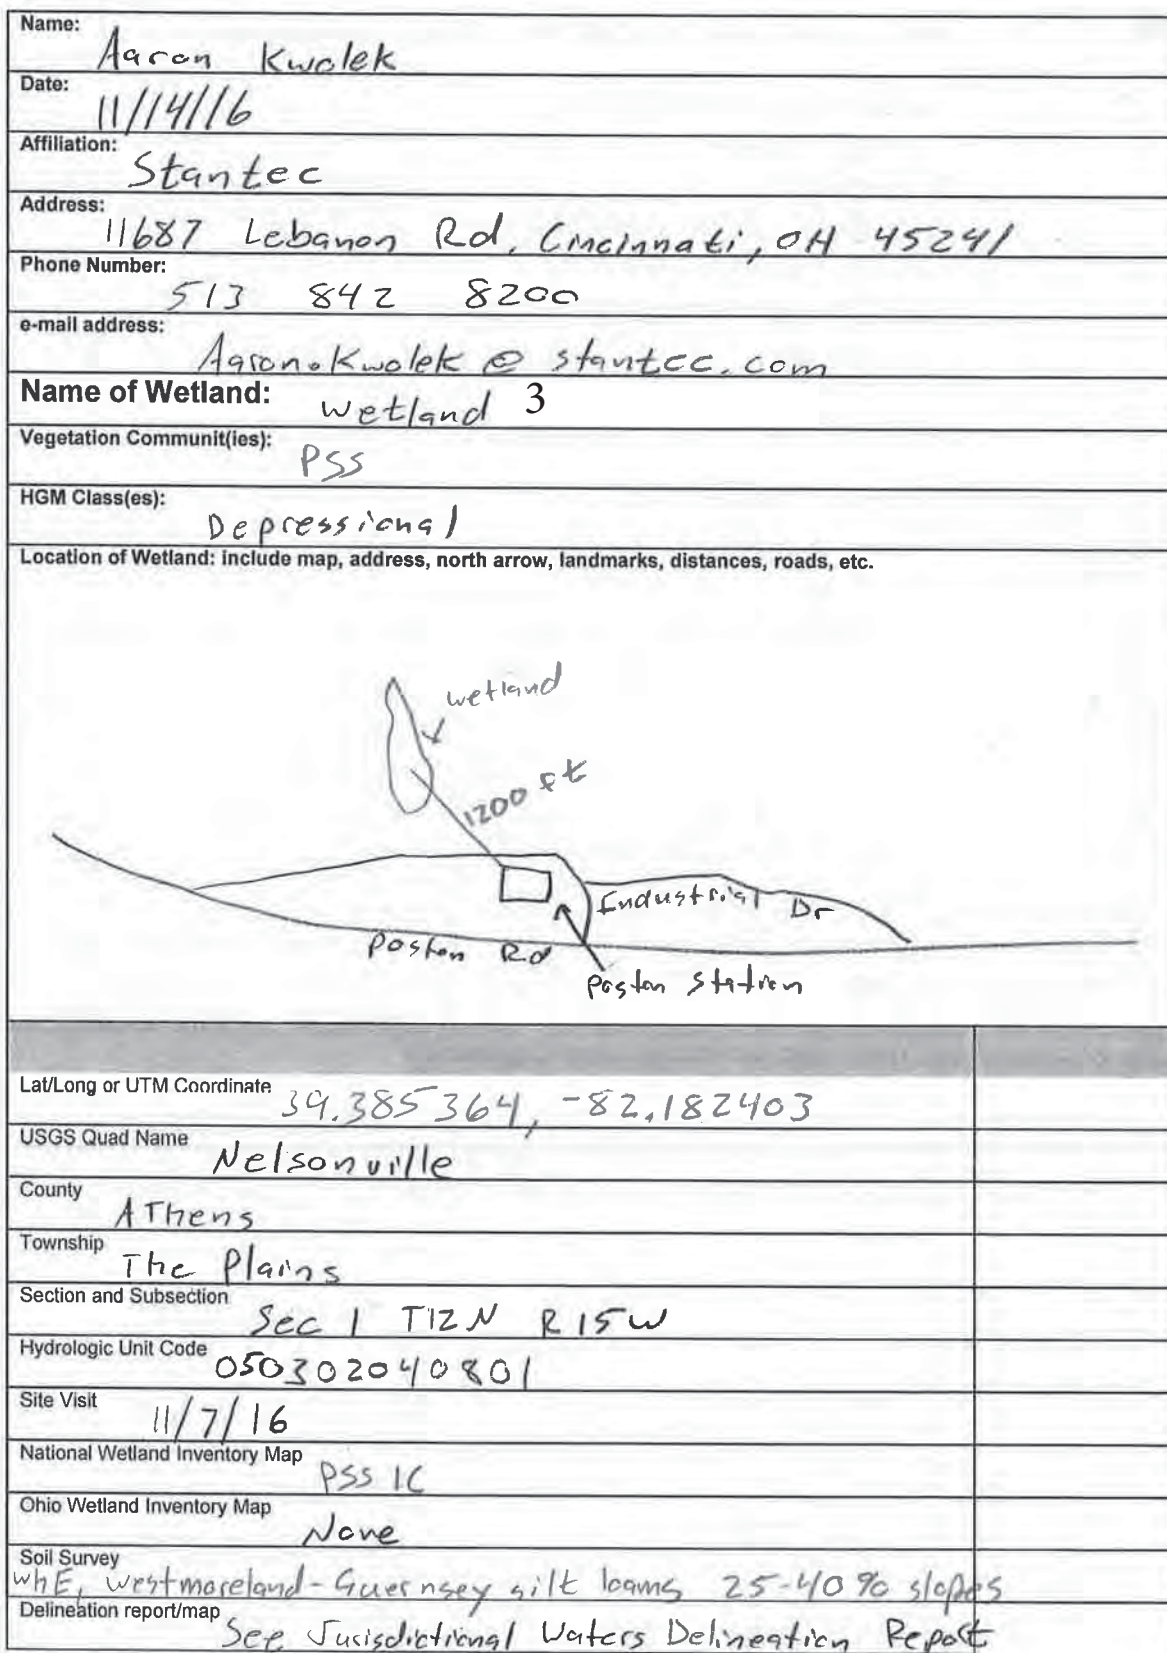 Name: Aaron Kwolek
Date: 11/14/16
Affiliation: Stantec
Address: 11687 Lebanon Rd, Cincinnati, OH 45241
Phone Number: 513 842 8200
e-mail address: Aaron.Kwolek @ stantec.com
Name of Wetland: Wetland 3
Vegetation Communit(ies): PSS
HGM Class(es): Depressional
Location of Wetland: include map, address, north arrow, landmarks, distances, roads, etc.
wetland
1200 ft
Industrial Dr
Poston Rd
Poston Station
Lat/Long or UTM Coordinate 39.385364, -82.182403
USGS Quad Name Nelsonville
County Athens
Township The Plains
Section and Subsection Sec 1 T12N R15W
Hydrologic Unit Code 050302040801
Site Visit 11/7/16
National Wetland Inventory Map PSS 1C
Ohio Wetland Inventory Map None
Soil Survey WhE, Westmoreland-Guernsey silt loams 25-40% slopes
Delineation report/map See Jurisdictional Waters Delineation Report